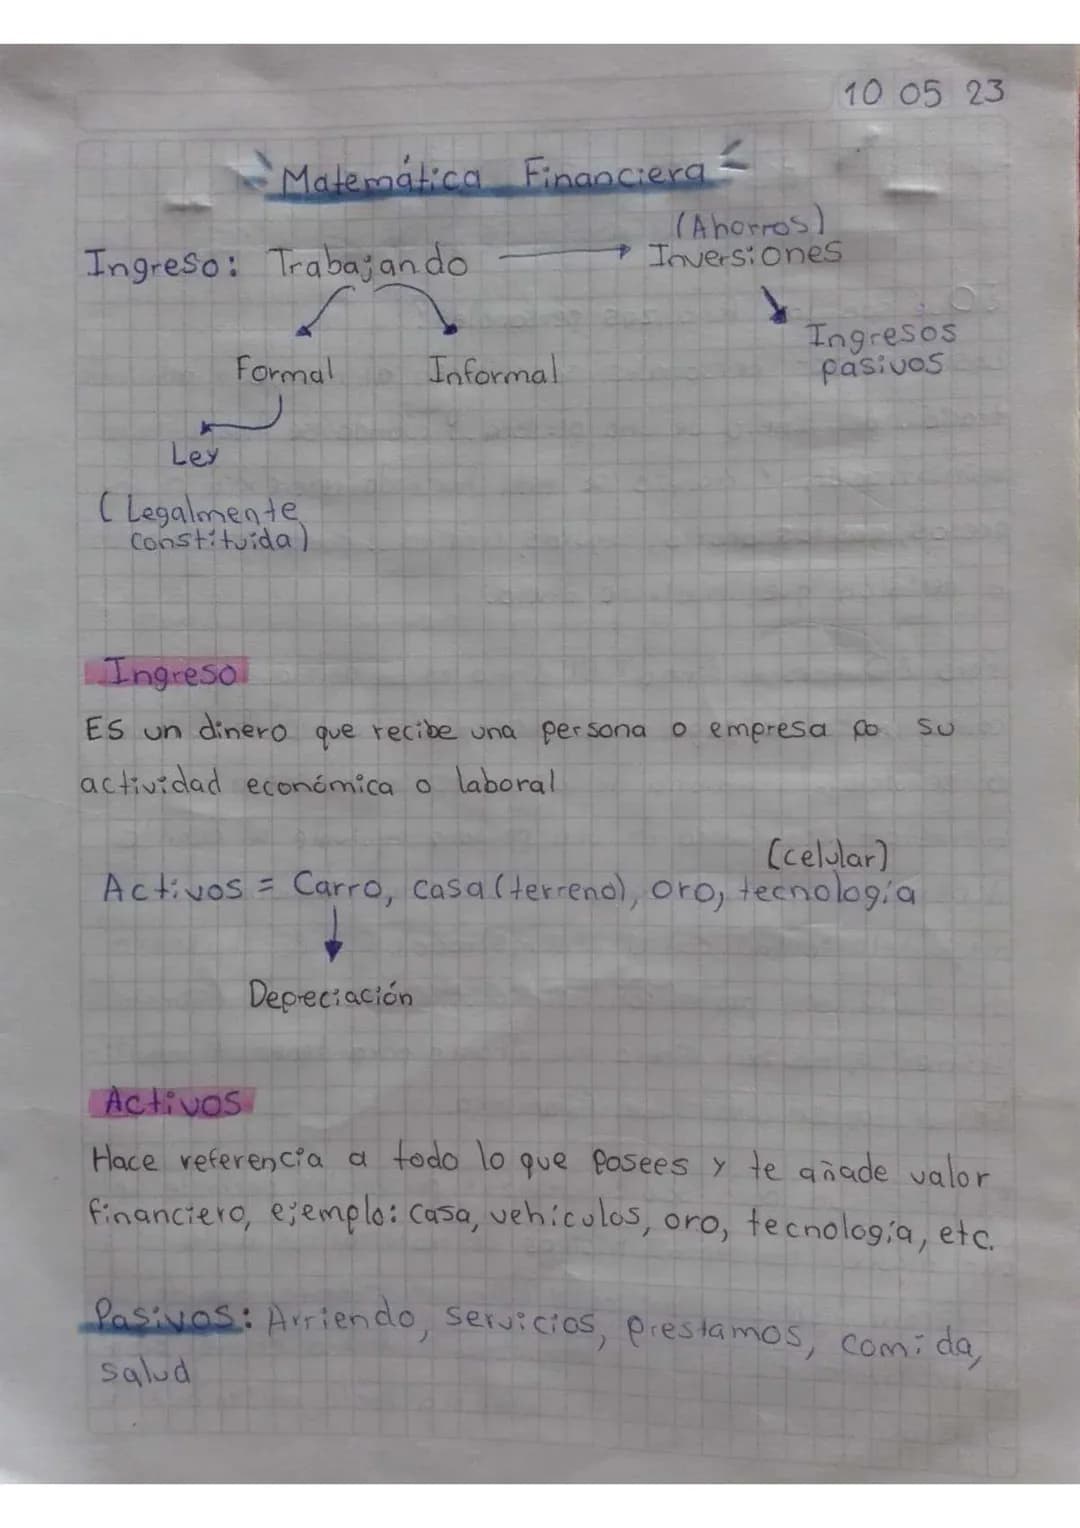 10 05 23
Matemática Financiera
(Ahorros)
Ingreso: Trabajando Inversiones
Ingresos
pasivos
Formal Informal
Ley
(Legalmente
constituida)
Ingreso
ES un dinero que recibe una persona o empresa po su
actividad económica o laboral
(celular)
Activos = Carro, casa (terreno), oro, tecnología
Depreciación
Activos
Hace referencia a todo lo que posees y te añade valor
financiero, ejemplo: casa, vehículos, oro, tecnología, etc.
Pasivos: Arriendo, servicios, prestamos, comida,
salud